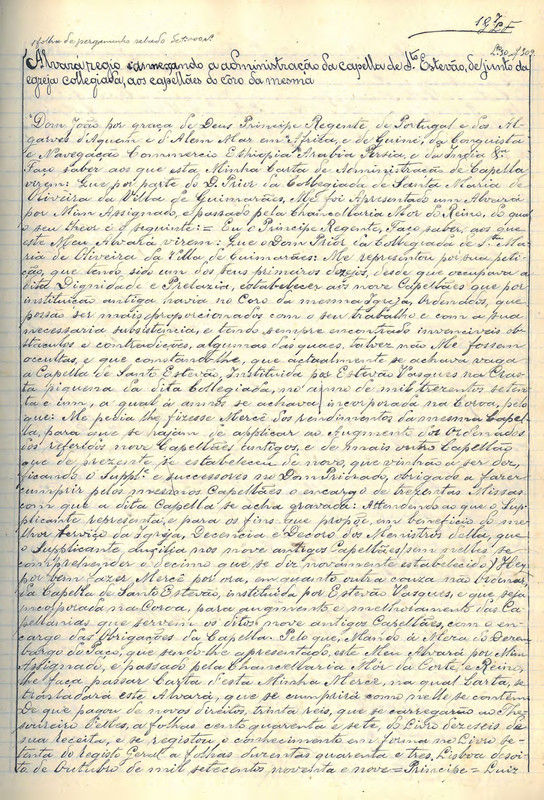 1 folha de pergaminho
Alvará regio annexando a administração da capella de S.to Estevão, de junto da
egreja collegiada, aos capellães do côro da mesma
"Dom João por graça de Deus Principe Regente de Portugal e dos Al-
garves d'Aquem e d'Alem Mar em Africa, e de Guiné, da Conquista
e Navegação Commercio Ethiopia Arabia Persia, e da India &.a
Faço saber aos que esta Minha Carta de Administração de Capella
virem: Que por parte do D. Prior da Collegiada de Santa Maria de
Oliveira da Villa de Guimarães, Me foi Apresentado um Alvará
por Mim Assignado, e passado pela Chancellaria Mór do Reino, do qual
o seu theor é o seguinte: = Eu o Principe Regente, Faço saber, aos que
este Meu Alvará virem: Que o Dom Prior da Collegiada de S.ta Ma-
ria de Oliveira da Villa, de Guimarães: Me representou por sua peti-
ção, que tendo sido um dos seus primeiros dezejos, desde que occupava a
dita Dignidade e Prelazia, estabelecer aos nove Capellães que por
instituição antiga havia no Coro da mesma Igreja, Ordenados, que
possão ser mais proporcionados com o seu trabalho e com a sua
necessaria subsistencia, e tendo sempre encontrado invenciveis ob-
staculos e contradições, algumas das quaes talvez não Me fossem
occultas, e que constando-lhe, que actualmente se achava vaga
a Capella de Santo Estevão, Instituida por Estevão Vasques na Craos-
ta piquena da dita Collegiada, no anno de mil trezentos seten-
ta e um, a qual, á annos se achava, incorporada na Coroa, pelo
que: Me pedia lhe fizesse Mercê dos rendimentos da mesma Capel-
la, para que se hajam de applicar ao Augmento dos Ordenados
dos referidos nove Capellães antigos, e de mais outro Capellão
que de prezente se estabeleceu de novo, que vinhão a ser dez,
ficando o Supp.e e successores no Dom Priorado, obrigado a fazer
cumprir pelos mesmos Capellães o encargo de trezentas Missas
com que a dita Capella se acha gravada: Attendendo ao que o Sup-
plicante representa, e para os fins que propõe, em beneficio do me-
lhor serviço da Igreja, Decencia e Decoro dos Ministros della, que
o Supplicante, duzilia nos nove antigos Capellães, sem nelles se
comprehender o decimo que se diz novamente estabelecido: Hey
por bem fazer Mercê por ora, em quanto outra couza não Ordenar,
da Capella de Santo Estevão, instituida por Estevão Vasques, e que seja
incorporada na Coroa, para augmento e melhoramento das Ca-
pellanias que servem os ditos nove antigos Capellães, com o en-
cargo das Obrigações da Capella. Pelo que, Mando á Meza do Dezem-
bargo do Paço, que sendo-lhe apresentado, este Meu Alvará por Mim
Assignado, e passado pela Chancellaria Mór da Corte, e Reino,
lhe faça passar Carta desta Minha Mercê, na qual Carta, se
trasladará este Alvará, que se cumprirá como nelle se contém
De que pagou de novos direitos, trinta reis, que se carregarão ao The-
soureiro delles, a folhas cento quarenta e sete, do Livro dezeseis da
sua receita, e se registou o conhecimento em forma no Livro se-
tenta do registo Geral a folhas duzentas quarenta e tres, Lisboa dezoi-
to de Outubro de mil setecentos noventa e nove = Principe = Luiz